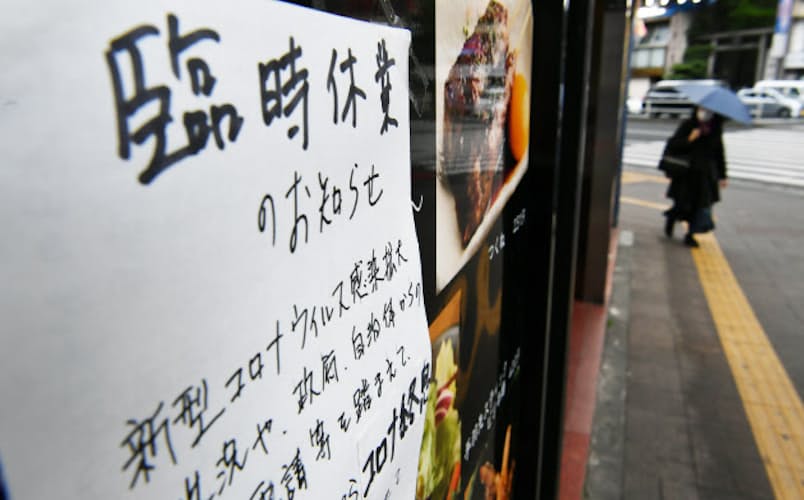 臨時休業
のお知らせ
新型コロナウイルス感染拡大
状況や、政府、自治体からの
要請等を踏まえて、
らコロナ終息
つくね